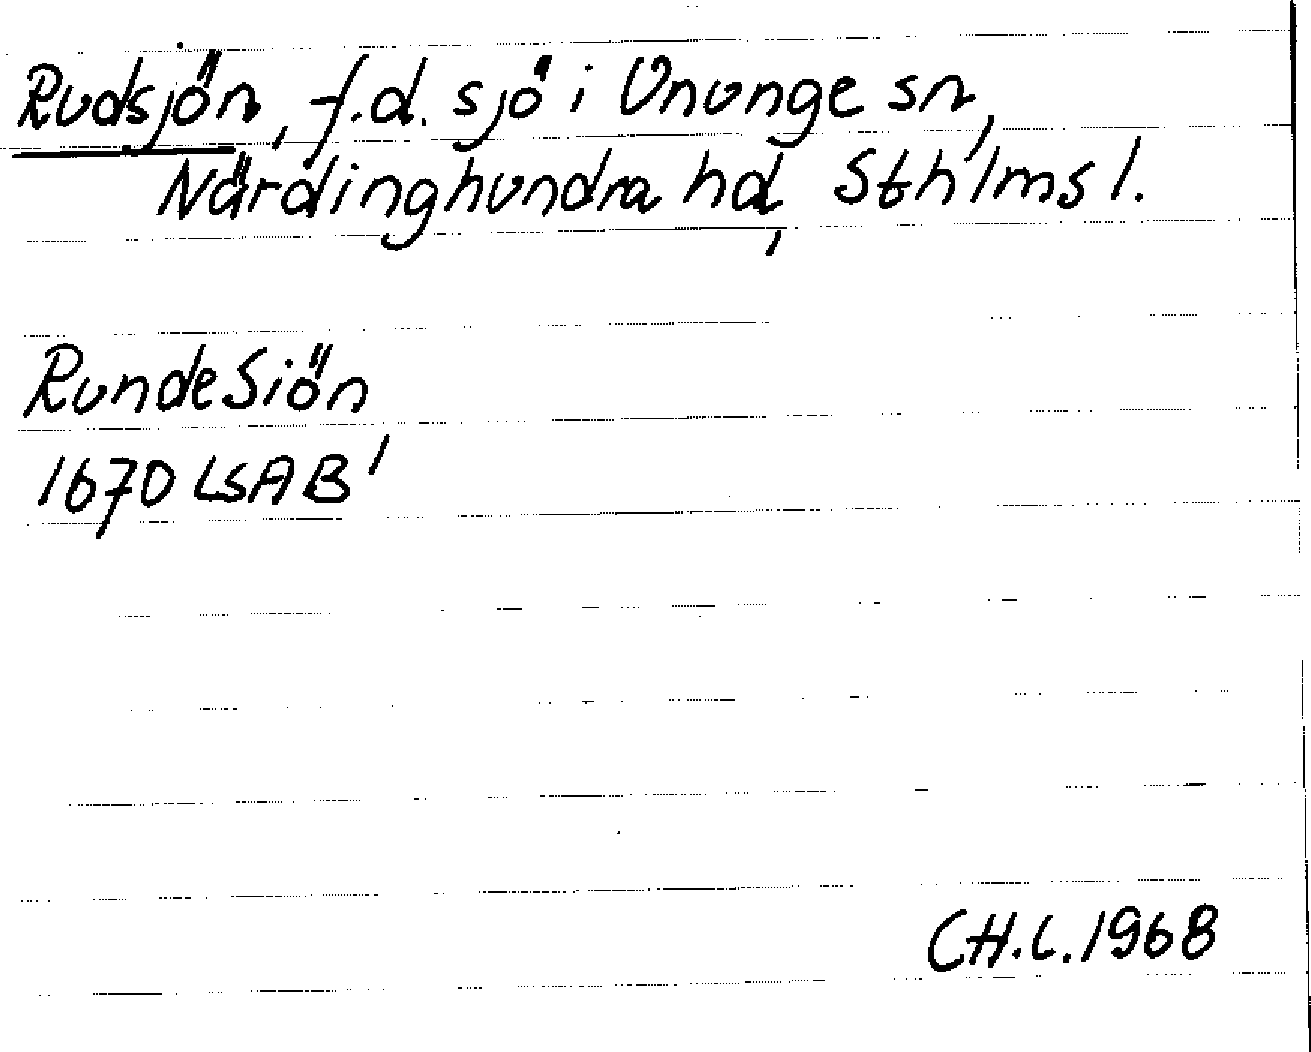 Rudsjön, f.d. sjö i Ununge sn,
Närdinghundra hd, Sthlms l.
RundeSiön
1670 LSA B'
CH.L. 1968